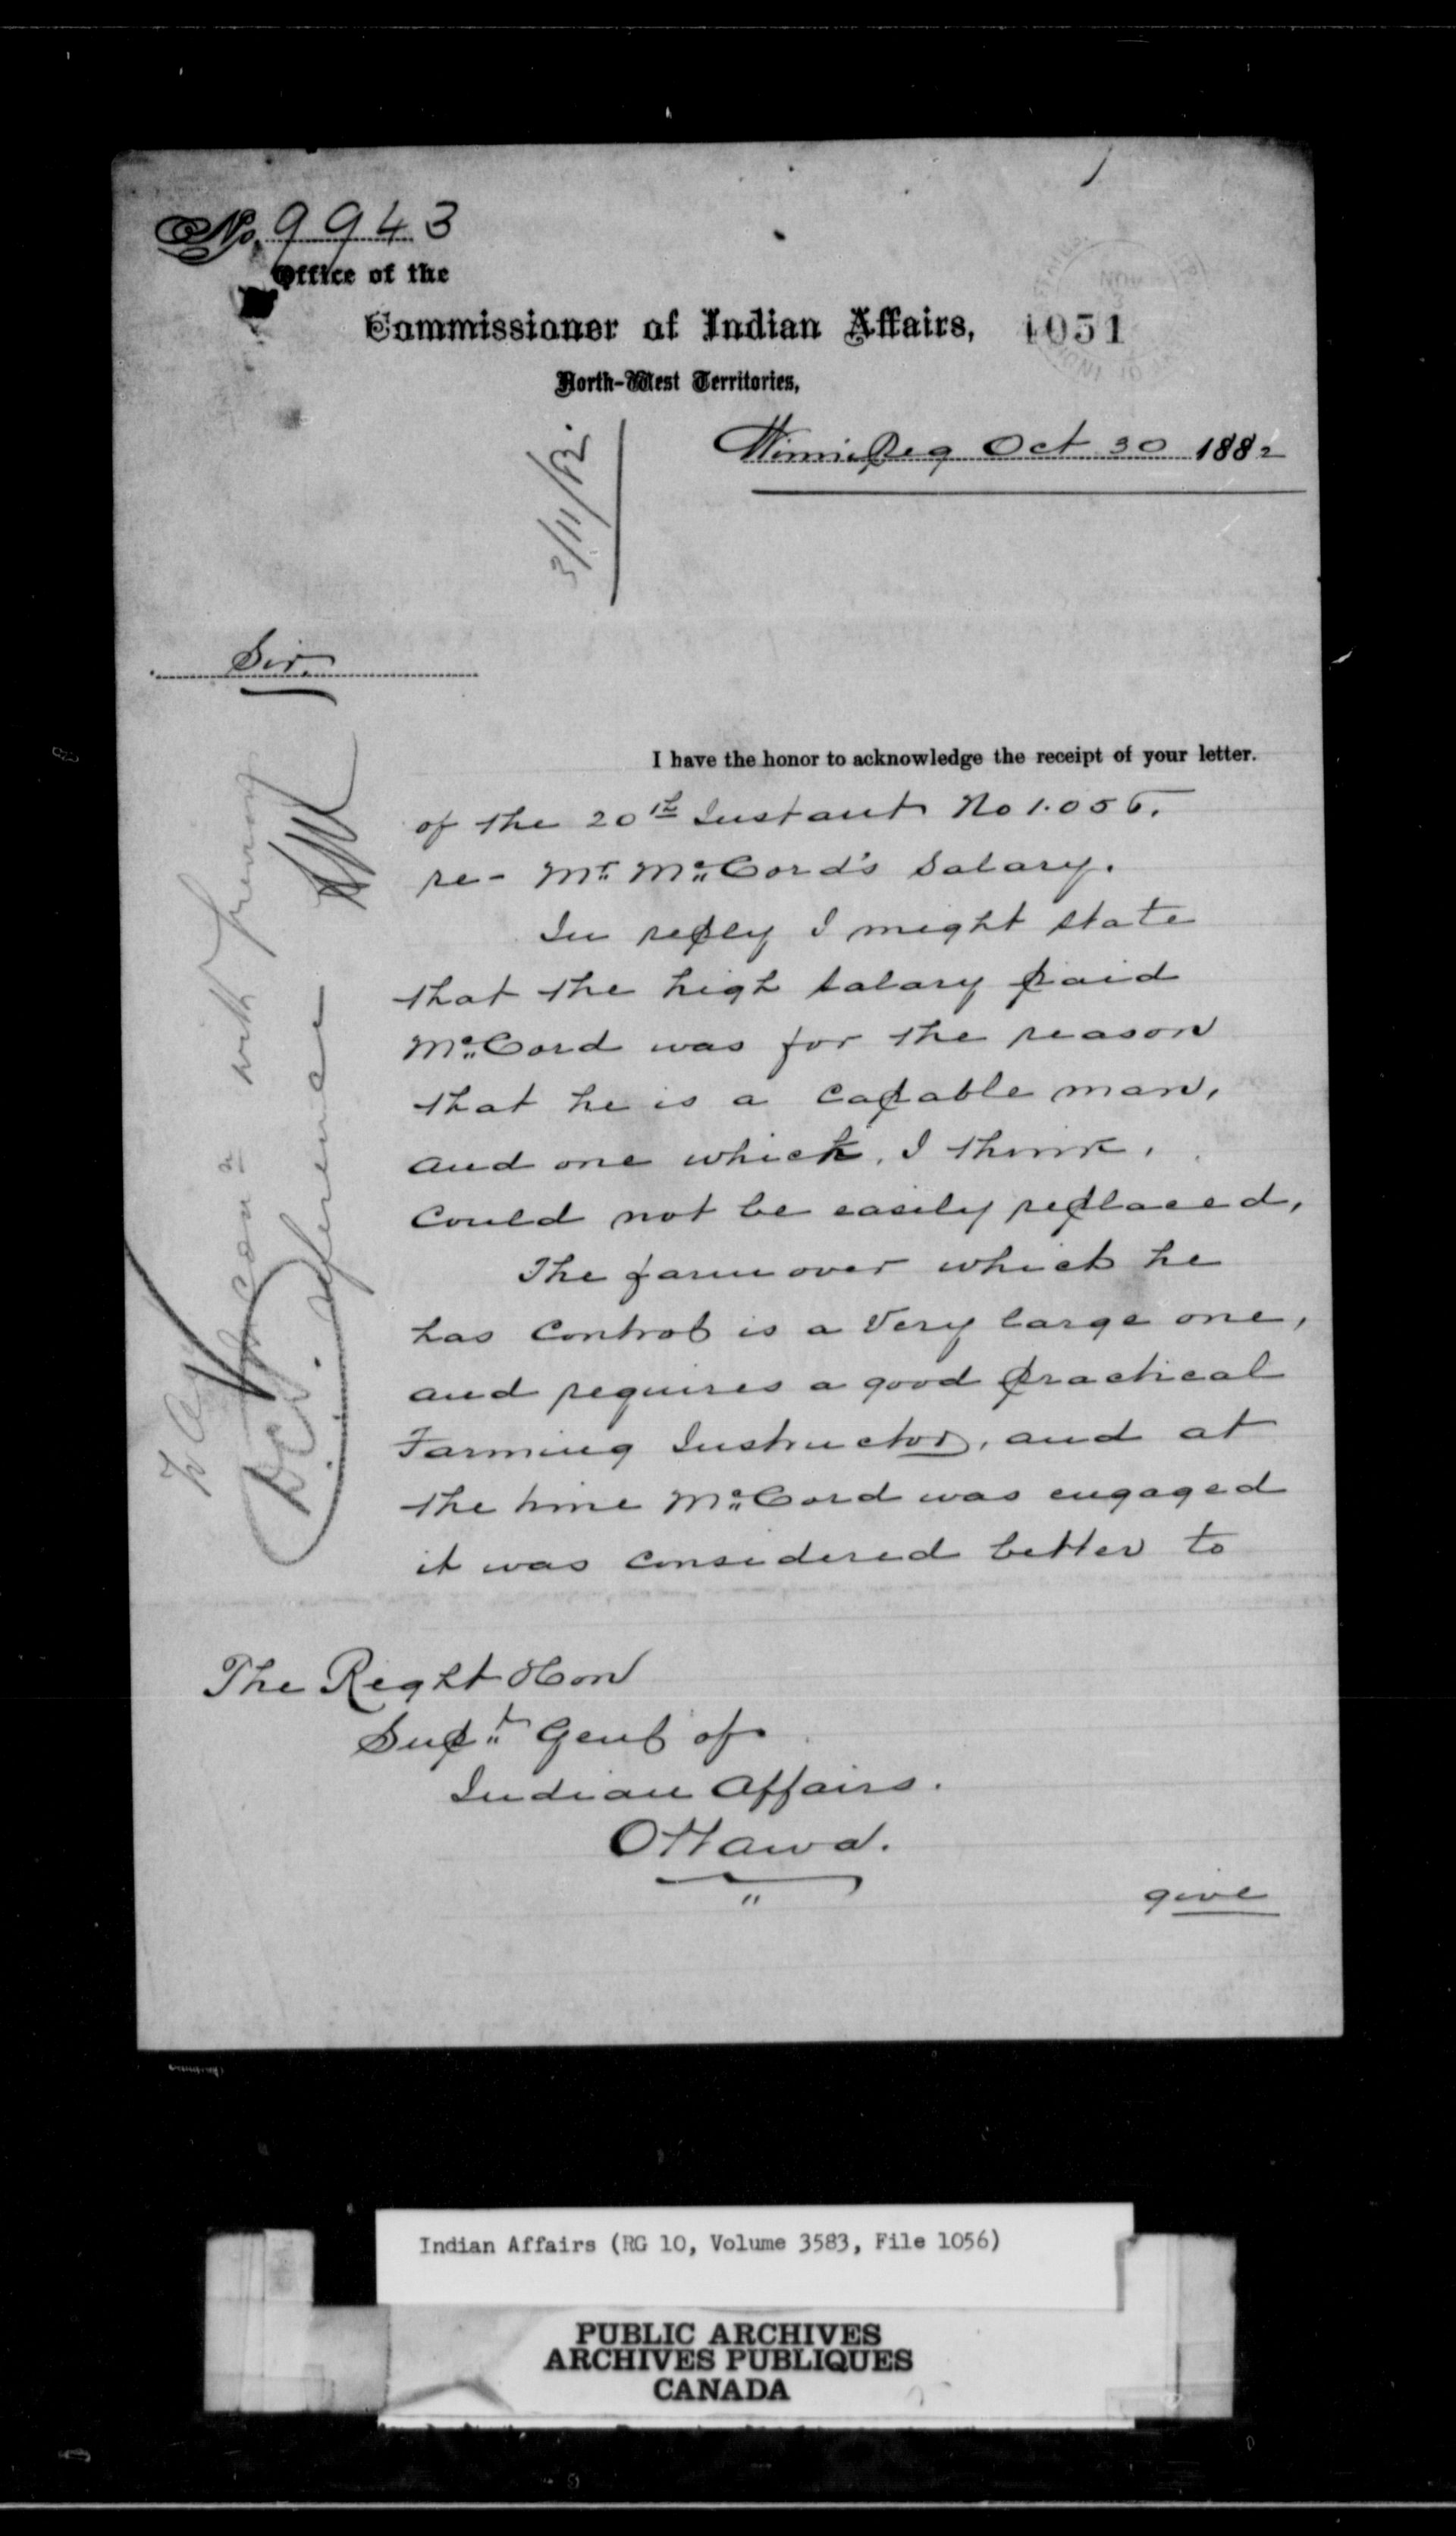 No. 9943
1
Office of the
Commissioner of Indian Affairs,
1051
North-West Territories,
Winnipeg Oct 30 1882
3/11/82.
Sir.
I have the honor to acknowledge the receipt of your letter.
of the 20th Instant No 1.056.
re- Mr. McCord's Salary.
In reply I might state
that the high salary paid
McCord was for the reason
that he is a capable man,
and one which, I think,
could not be easily replaced,
The farm over which he
has control is a very large one,
and requires a good practical
Farming Instructor, and at
the time McCord was engaged
it was considered better to
The Right Hon
Supt. Genl of
Indian Affairs.
Ottawa.
give
with previous
reference
Indian Affairs (RG 10, Volume 3583, File 1056)
PUBLIC ARCHIVES
ARCHIVES PUBLIQUES
CANADA